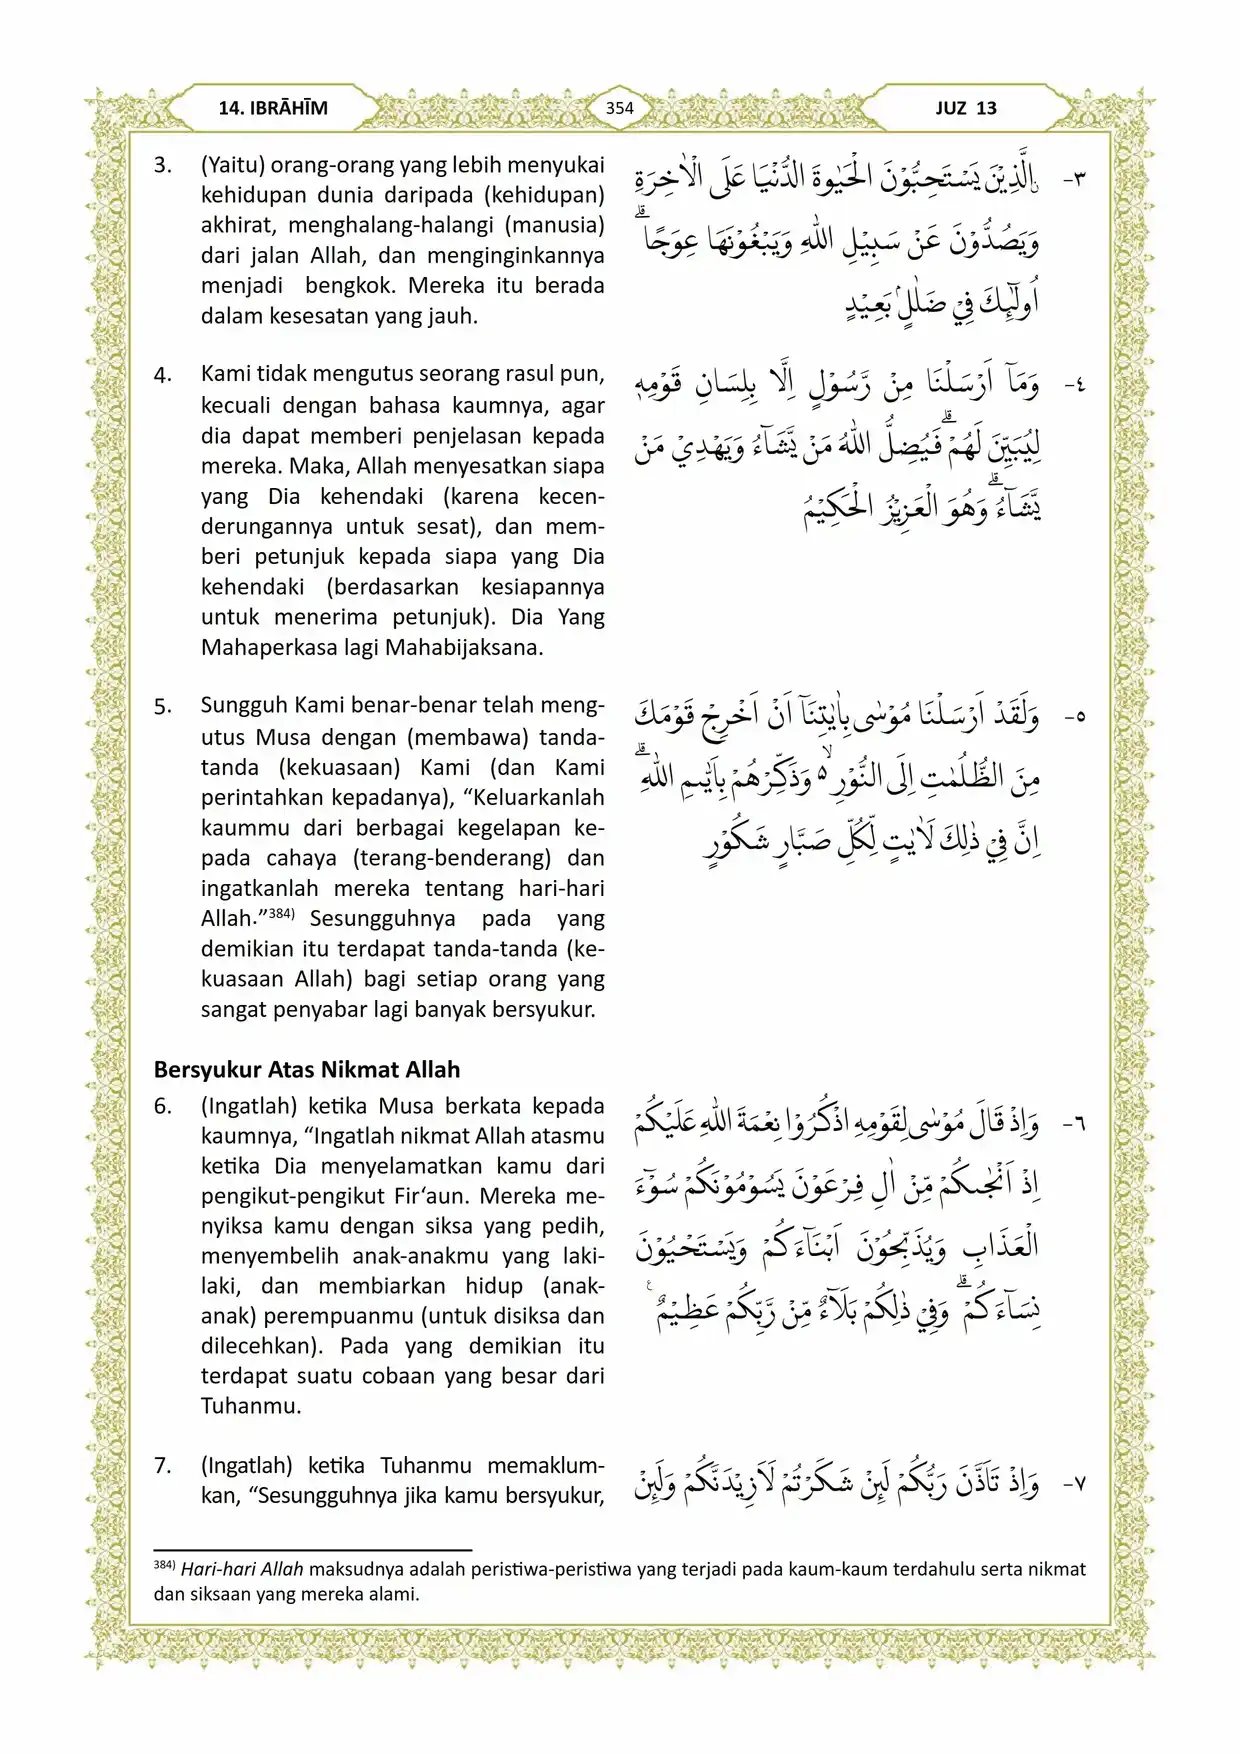 14. IBRĀHĪM
354
JUZ 13
3. (Yaitu) orang-orang yang lebih menyukai
kehidupan dunia daripada (kehidupan)
akhirat, menghalang-halangi (manusia)
dari jalan Allah, dan menginginkannya
menjadi bengkok. Mereka itu berada
dalam kesesatan yang jauh.
٣- ࣙالَّذِيْنَ يَسْتَحِبُّوْنَ الْحَيٰوةَ الدُّنْيَا عَلَى الْاٰخِرَةِ
وَيَصُدُّوْنَ عَنْ سَبِيْلِ اللّٰهِ وَيَبْغُوْنَهَا عِوَجًاۗ
اُولٰۤىِٕكَ فِيْ ضَلٰلٍۢ بَعِيْدٍ
4. Kami tidak mengutus seorang rasul pun,
kecuali dengan bahasa kaumnya, agar
dia dapat memberi penjelasan kepada
mereka. Maka, Allah menyesatkan siapa
yang Dia kehendaki (karena kecen-
derungannya untuk sesat), dan mem-
beri petunjuk kepada siapa yang Dia
kehendaki (berdasarkan kesiapannya
untuk menerima petunjuk). Dia Yang
Mahaperkasa lagi Mahabijaksana.
٤- وَمَآ اَرْسَلْنَا مِنْ رَّسُوْلٍ اِلَّا بِلِسَانِ قَوْمِهٖ
لِيُبَيِّنَ لَهُمْۗ فَيُضِلُّ اللّٰهُ مَنْ يَّشَاۤءُ وَيَهْدِيْ مَنْ
يَّشَاۤءُۗ وَهُوَ الْعَزِيْزُ الْحَكِيْمُ
5. Sungguh Kami benar-benar telah meng-
utus Musa dengan (membawa) tanda-
tanda (kekuasaan) Kami (dan Kami
perintahkan kepadanya), “Keluarkanlah
kaummu dari berbagai kegelapan ke-
pada cahaya (terang-benderang) dan
ingatkanlah mereka tentang hari-hari
Allah.”384) Sesungguhnya pada yang
demikian itu terdapat tanda-tanda (ke-
kuasaan Allah) bagi setiap orang yang
sangat penyabar lagi banyak bersyukur.
٥- وَلَقَدْ اَرْسَلْنَا مُوْسٰى بِاٰيٰتِنَآ اَنْ اَخْرِجْ قَوْمَكَ
مِنَ الظُّلُمٰتِ اِلَى النُّوْرِ ەۙ وَذَكِّرْهُمْ بِاَيّٰىمِ اللّٰهِۗ
اِنَّ فِيْ ذٰلِكَ لَاٰيٰتٍ لِّكُلِّ صَبَّارٍ شَكُوْرٍ
Bersyukur Atas Nikmat Allah
6. (Ingatlah) ketika Musa berkata kepada
kaumnya, “Ingatlah nikmat Allah atasmu
ketika Dia menyelamatkan kamu dari
pengikut-pengikut Fir‘aun. Mereka me-
nyiksa kamu dengan siksa yang pedih,
menyembelih anak-anakmu yang laki-
laki, dan membiarkan hidup (anak-
anak) perempuanmu (untuk disiksa dan
dilecehkan). Pada yang demikian itu
terdapat suatu cobaan yang besar dari
Tuhanmu.
٦- وَاِذْ قَالَ مُوْسٰى لِقَوْمِهِ اذْكُرُوْا نِعْمَةَ اللّٰهِ عَلَيْكُمْ
اِذْ اَنْجٰىكُمْ مِّنْ اٰلِ فِرْعَوْنَ يَسُوْمُوْنَكُمْ سُوْۤءَ
الْعَذَابِ وَيُذَبِّحُوْنَ اَبْنَاۤءَكُمْ وَيَسْتَحْيُوْنَ
نِسَاۤءَكُمْۗ وَفِيْ ذٰلِكُمْ بَلَاۤءٌ مِّنْ رَّبِّكُمْ عَظِيْمٌ ࣖ
7. (Ingatlah) ketika Tuhanmu memaklum-
kan, “Sesungguhnya jika kamu bersyukur,
٧- وَاِذْ تَاَذَّنَ رَبُّكُمْ لَىِٕنْ شَكَرْتُمْ لَاَزِيْدَنَّكُمْ وَلَىِٕنْ
384) Hari-hari Allah maksudnya adalah peristiwa-peristiwa yang terjadi pada kaum-kaum terdahulu serta nikmat
dan siksaan yang mereka alami.